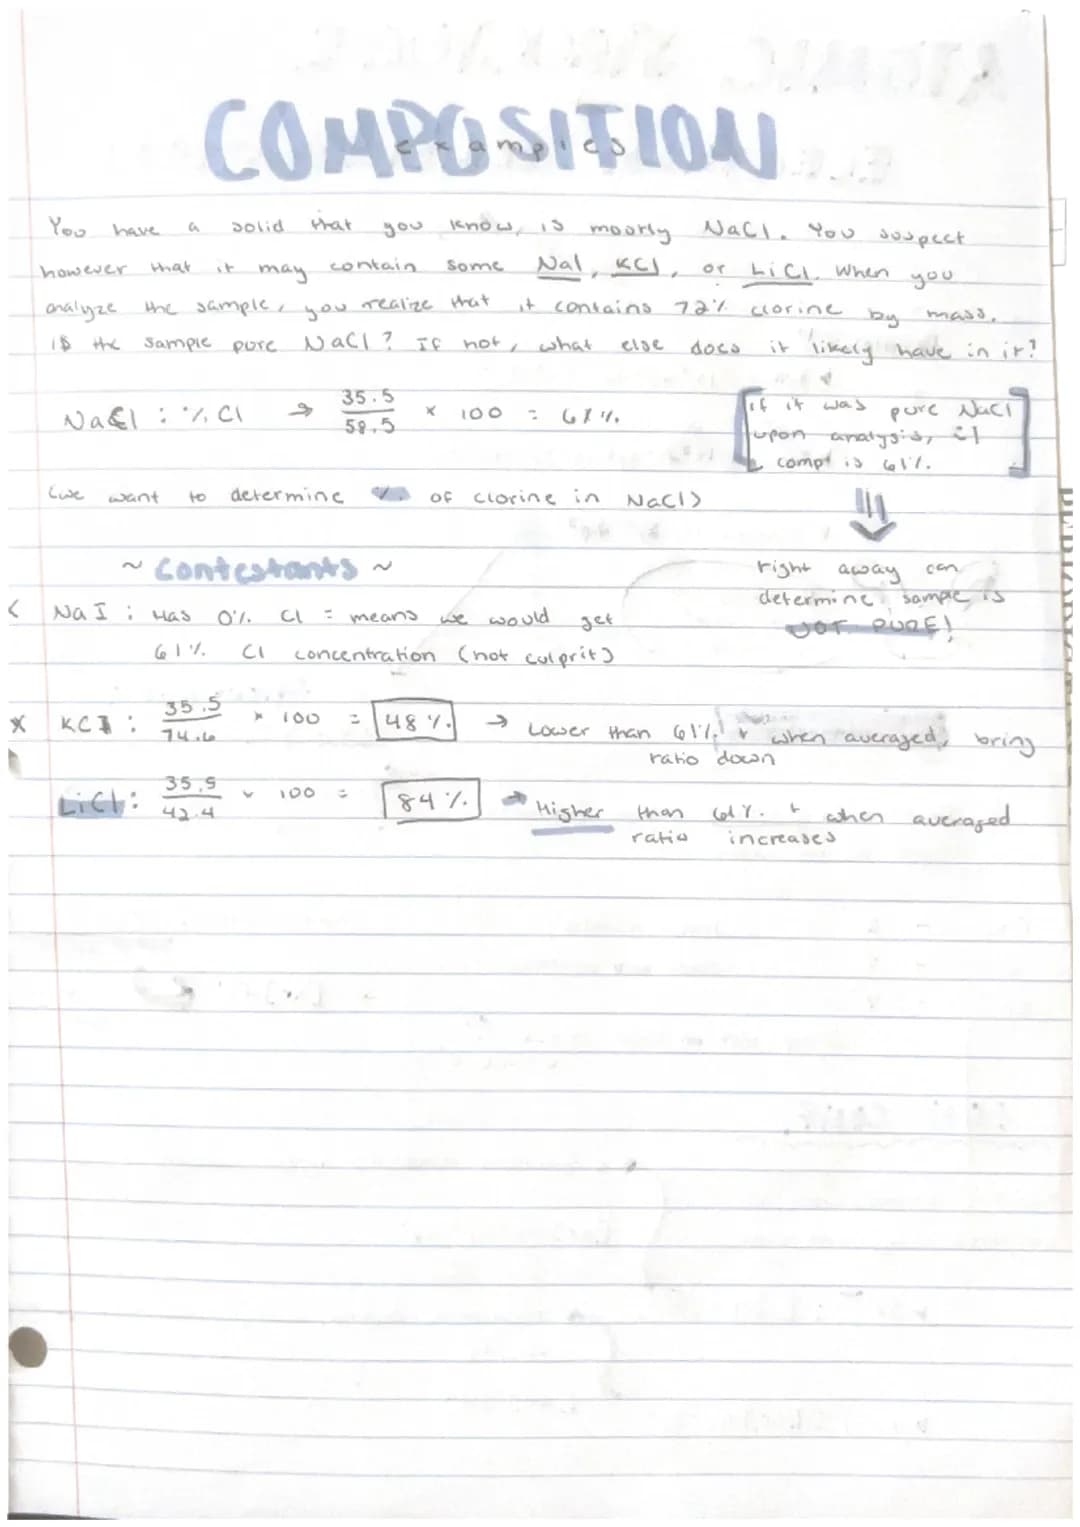 COMPOSITION
examples
You have a solid that you know, is moorly NaCl. You souspect
however that it may contain some NaI, KCl, or LiCl. When you
analyze the sample, you realize that it contains 72% clorine by mass.
is the sample pure NaCl? If not, what else does it likely have in it?
NaCl : % Cl → 35.5 / 58.5 × 100 = 61%.
[if it was pure NaCl
upon analysis, Cl
comp is 61%.]
(we want to determine % of clorine in NaCl)
~ Contestants ~
right away can
determine sample is
NOT PURE!
NaI : Has 0% Cl = means we would get
61% Cl concentration (not culprit)
x KCl : 35.5 / 74.6 × 100 = 48%. → Lower than 61%, + when averaged, bring
ratio down
LiCl : 35.5 / 42.4 × 100 = 84%. → Higher than 61%. + when averaged
ratio increases